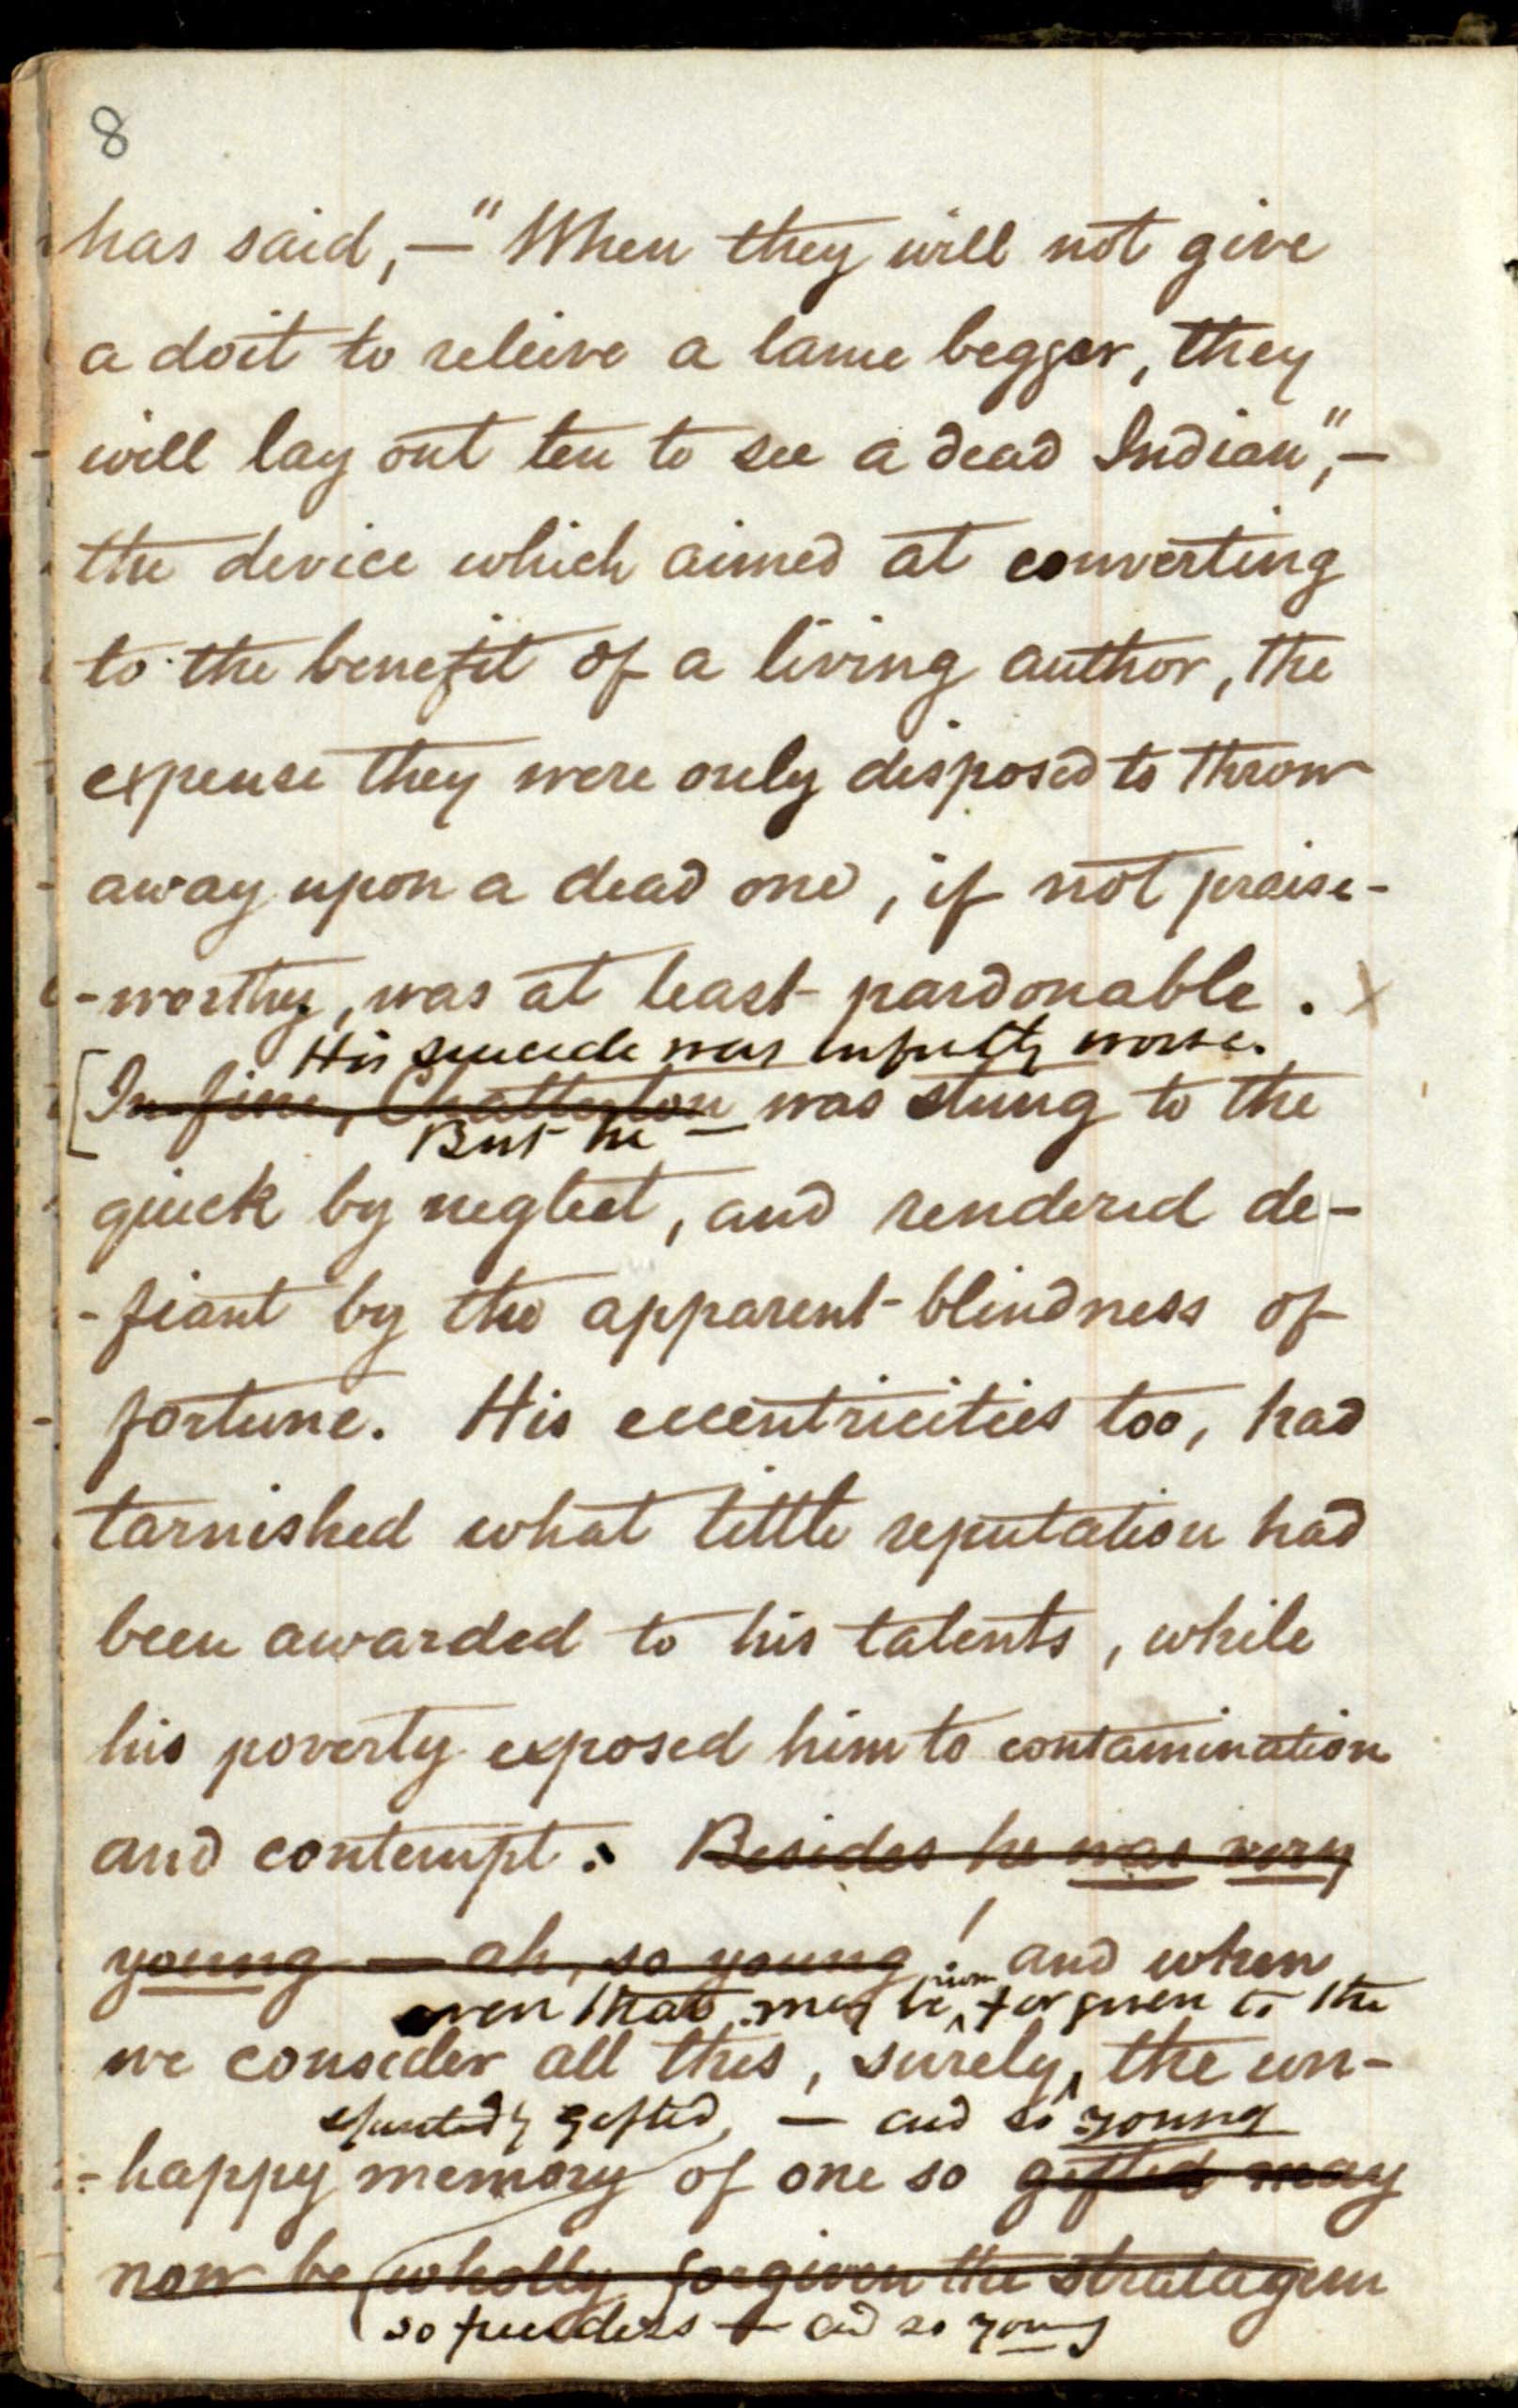 8
has said, — "When they will not give
a doit to releive a lame beggar, they
will lay out ten to see a dead Indian", —
the device which aimed at converting
to the benefit of a living author, the
expense they were only disposed to throw
away upon a dead one, if not praise-
-worthy, was at least pardonable. X
His suicide was infinitely worse.
[In fine, Chatterton was stung to the
But he —
quick by neglect, and rendered de-
-fiant by the apparent blindness of
fortune. His eccentricities too, had
tarnished what little reputation had
been awarded to his talents, while
his poverty exposed him to contamination
and contempt: Besides he was very
young — ah, so young! and when
even that may be now forgiven to the
we consider all this, surely, the un-
gifted, — and so young
-happy memory of one so gifted may
now be (wholly forgiven the stratagem
so friendless — and so young